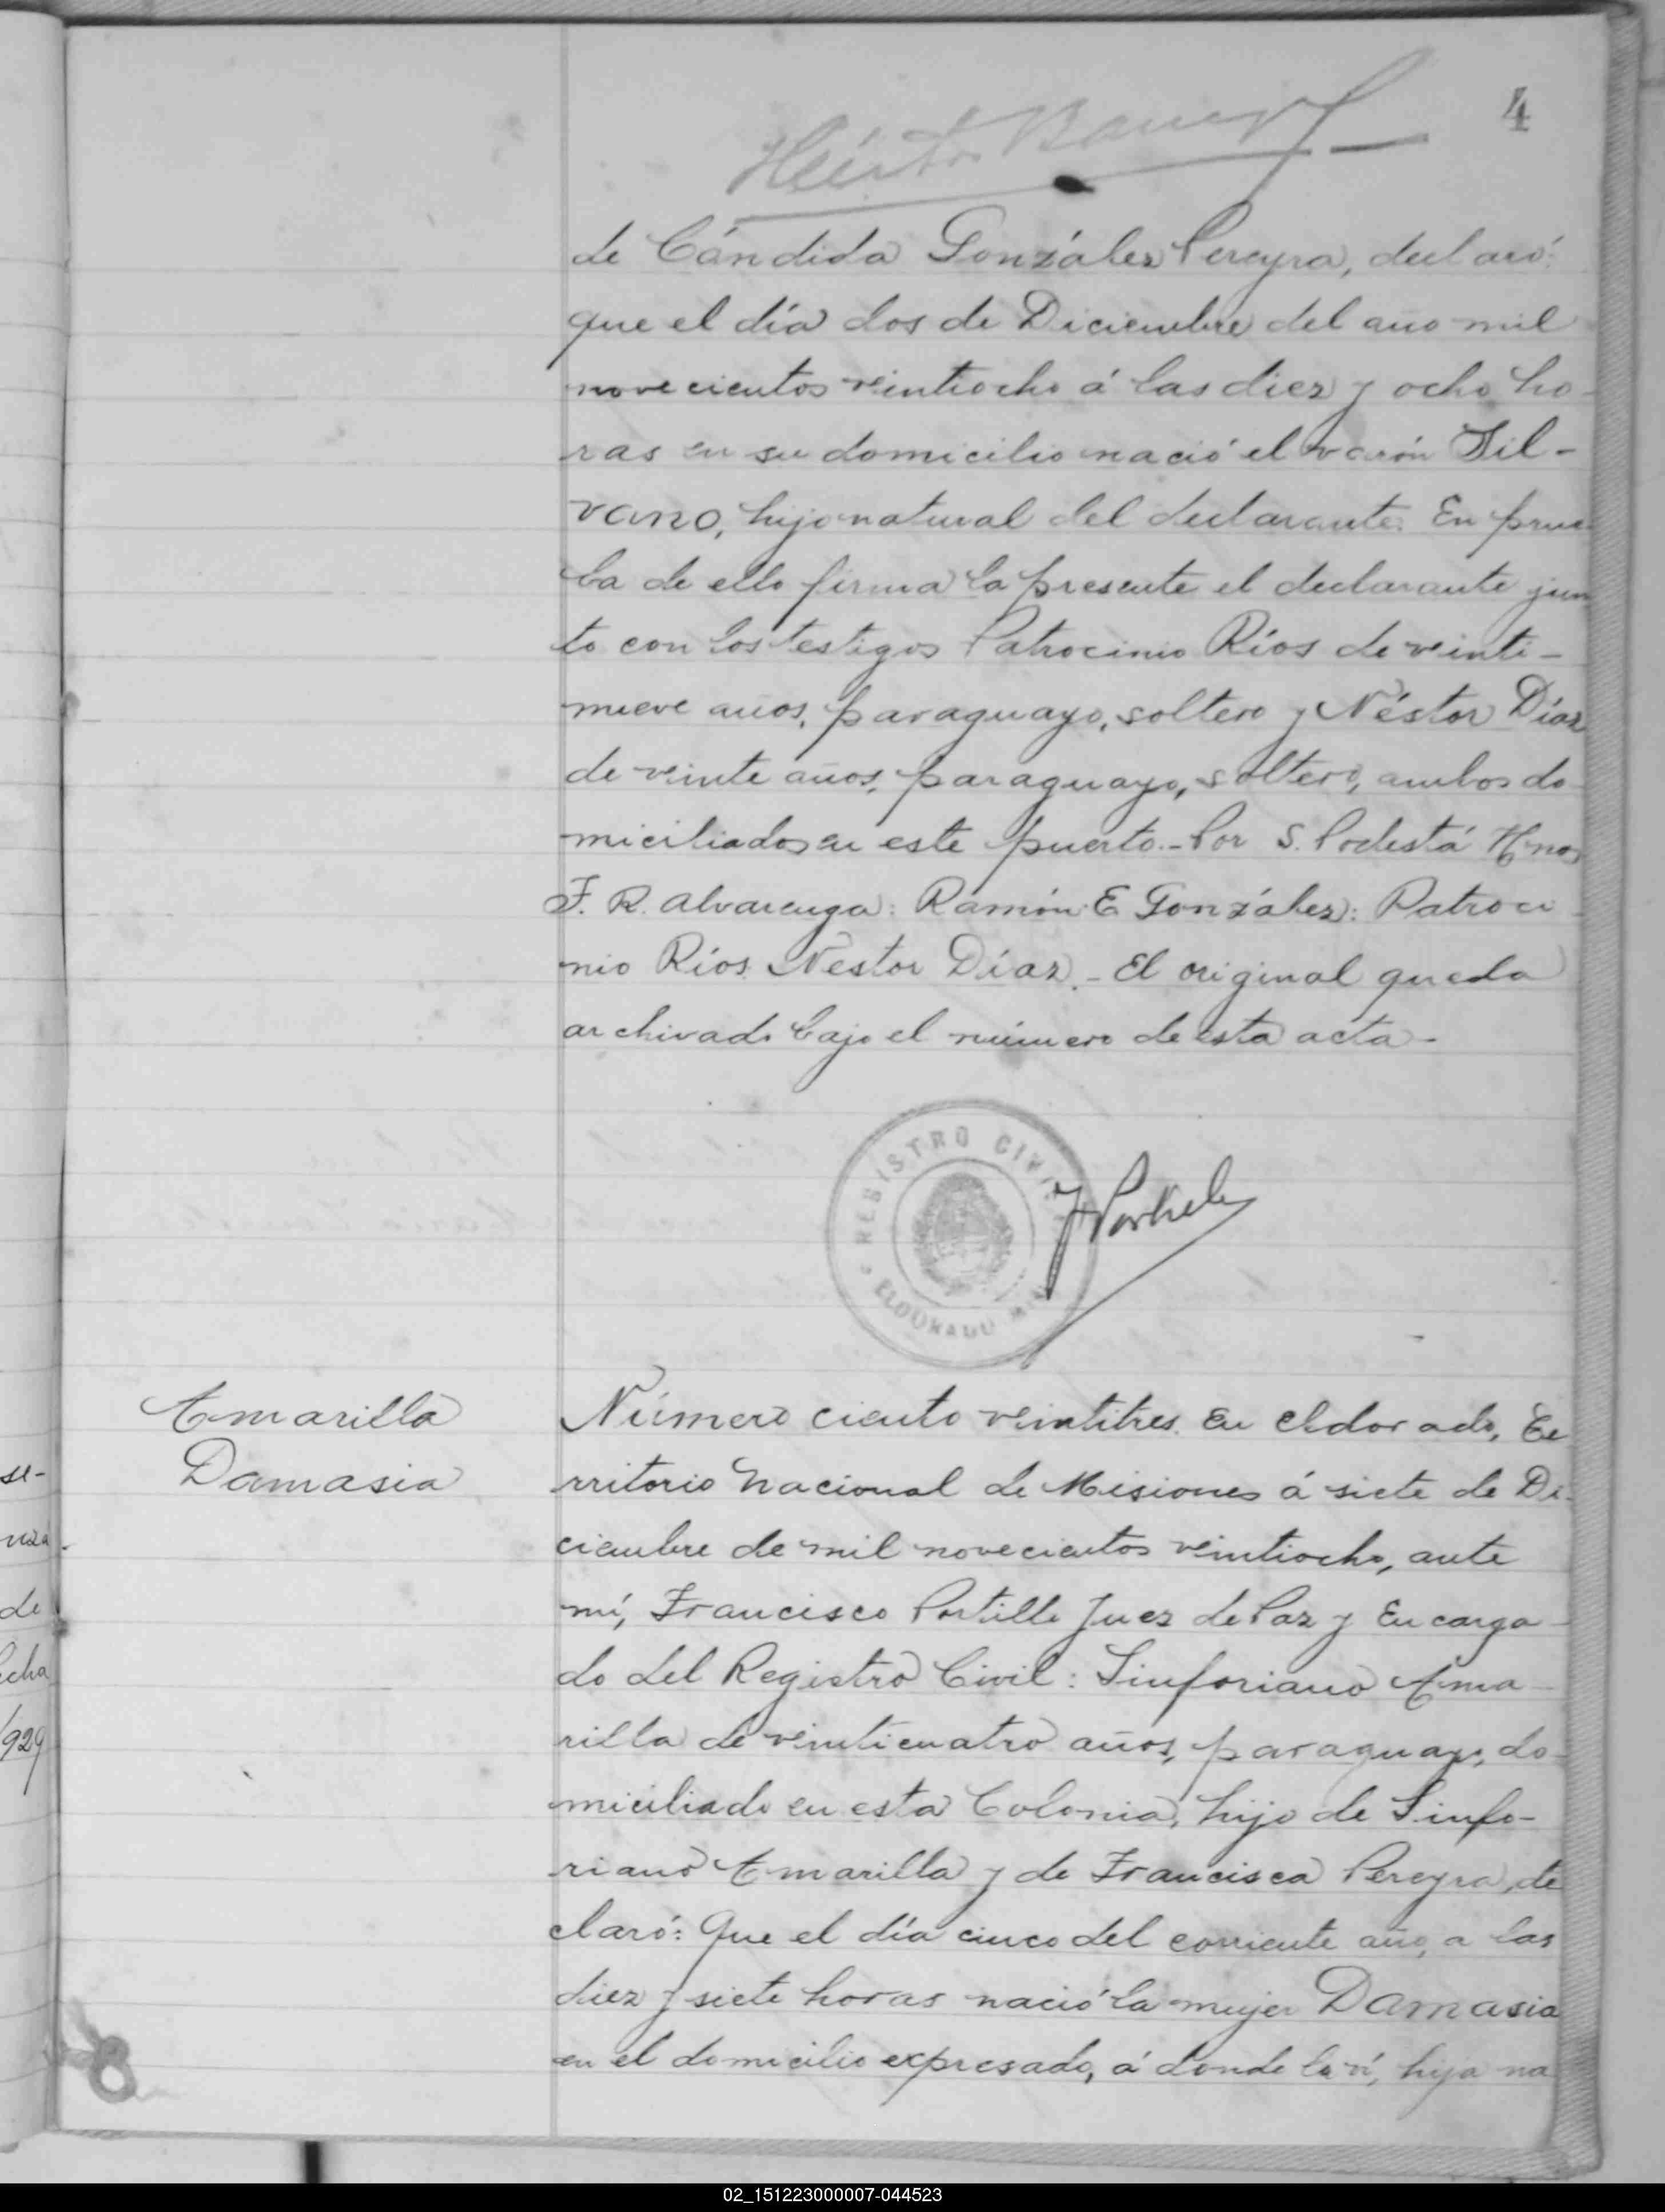 4
de Cándida González Pereyra, declaró:
que el día dos de Diciembre del año mil
novecientos veintiocho á las diez y ocho ho-
ras en su domicilio nació el varón Sil-
vano, hijo natural del declarante. En prue-
ba de ello firma la presente el declarante jun
to con los testigos Patrocinio Ríos de veinti-
nueve años, paraguayo, soltero y Néstor Díaz
de veinte años, paraguayo, soltero, ambos do
miciliados en este puerto.- Por S. Podestá Hnos
F. R. Alvarenga: Ramón E González: Patroci-
nio Ríos Nestor Díaz.- El original queda
archivado bajo el número de esta acta-
REGISTRO CIVIL
ELDORADO
Amarilla
Damasia
Número ciento veintitres. En Eldorado, Te
rritorio Nacional de Misiones á siete de Di-
ciembre de mil novecientos veintiocho, ante
mí, Francisco Portillo Juez de Paz y Encarga-
do del Registro Civil: Sinforiano Ama-
rilla de veinticuatro años, paraguayo, do-
miciliado en esta Colonia, hijo de Sinfo-
riano Amarilla y de Francisca Pereyra, de
claró: Que el día cinco del corriente año, a las
diez y siete horas nació la mujer Damasia
en el domicilio expresado, á donde la ví, hija na
se-
de
echa
1929
02_151223000007-044523